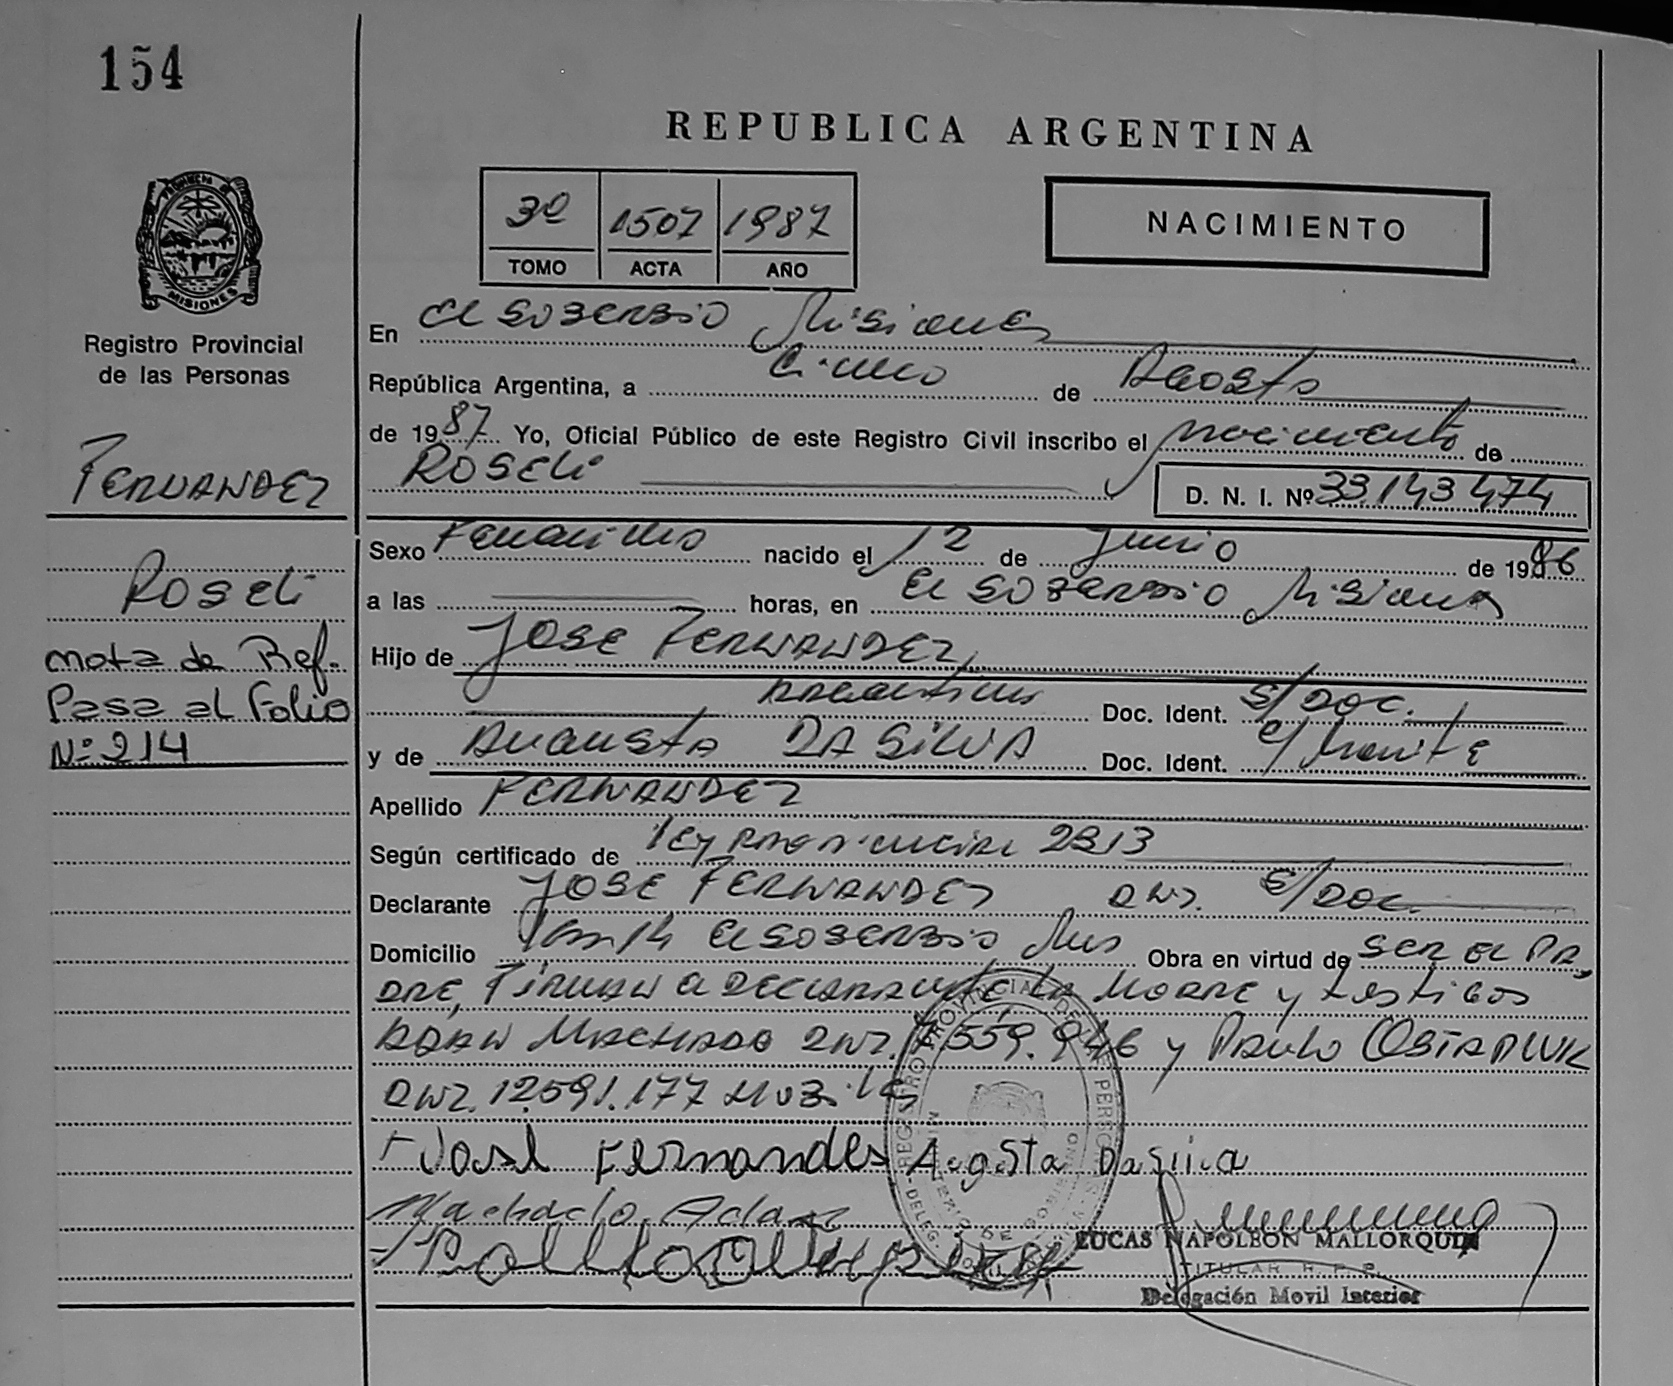 154
REPUBLICA ARGENTINA
PROVINCIA DE MISIONES
3º 1507 1987
TOMO ACTA AÑO
NACIMIENTO
Registro Provincial
de las Personas
En El SOBERBIO Misiones
República Argentina, a Cinco de Agosto
de 1987 Yo, Oficial Público de este Registro Civil inscribo el nacimiento de
ROSELI D. N. I. Nº 33.143 474
FERNANDEZ
Sexo Femenino nacido el 12 de Junio de 1986
Roseli
a las horas, en El SOBERBIO Misiones
nota de Ref.
Pasa al Folio
Nº 214
Hijo de JOSE FERNANDEZ,
Argentino Doc. Ident. S/DOC.
y de Augusta DA SILVA Doc. Ident.
Apellido FERNANDEZ
Según certificado de ley provincial 2813
Declarante JOSE FERNANDEZ DNI. S/DOC.
Domicilio Km 14 El SOBERBIO Mis Obra en virtud de SER EL PA
DRE, FIRMAN El DECLARANTE LA MADRE y testigos
ADAN MACHADO DNI. 7.559.946 y PAULO
DNI. 12.591.177
José Fernandes Agosta Dasilva
Machado, Adan
LUCAS NAPOLEON MALLORQUIN
TITULAR R. P. P.
Delegación Movil Interior